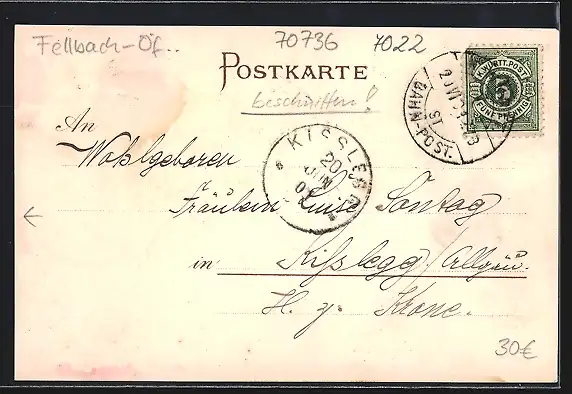 Fellbach-Öf..
70736
7022
POSTKARTE
beschnitten!
K.WÜRTT.POST
5
FÜNF PFENNIG
BAHN-POST.
KISSLEGG
20
JUN
An
Wohlgeboren
Fräulein Luise Sontag
in Kisslegg/Allgäu.
H. z. Krone.
30€